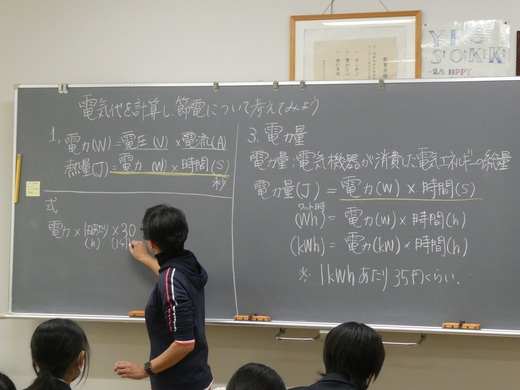 電気代を計算し節電について考えてみよう
1, 電力(W)=電圧(V)×電流(A)
熱量(J)=電力(W)×時間(S)
秒
式
電力×1日あたり×30
(h)
3. 電力量
電力量:電気機器が消費した電気エネルギーの総量
電力量(J)=電力(W)×時間(S)
ワット時
(Wh)=電力(W)×時間(h)
(kWh)=電力(kW)×時間(h)
※ 1kWhあたり35円くらい.